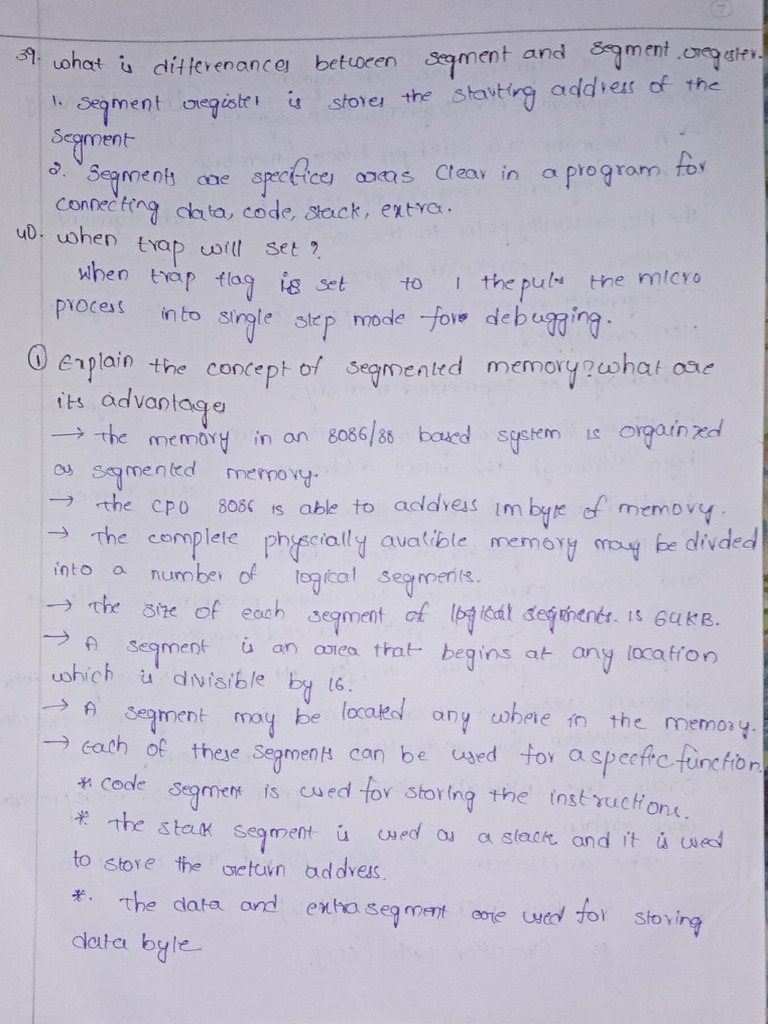 39. what is differenances between segment and segment register.
1. segment register is stores the starting address of the
segment
2. segments are specifices areas clear in a program for
connecting data, code, stack, extra.
40. when trap will set?
when trap flag is set to 1 the puls the micro
process into single step mode fore debugging.
① Explain the concept of segmented memory? what are
its advantages
→ the memory in an 8086/88 based system is orgainzed
as segmented memory.
→ the CPU 8086 is able to address 1m byte of memory.
→ The complete physcially avalible memory may be divded
into a number of logical segments.
→ The size of each segment of logical segments. is 64KB.
→ A segment is an area that begins at any location
which is divisible by 16.
→ A segment may be located any where in the memory.
→ Each of these segments can be used for a specific function.
* code segment is used for storing the instructions.
* The stack segment is used as a stack and it is used
to store the return address.
*. The data and extra segment are used for storing
data byte